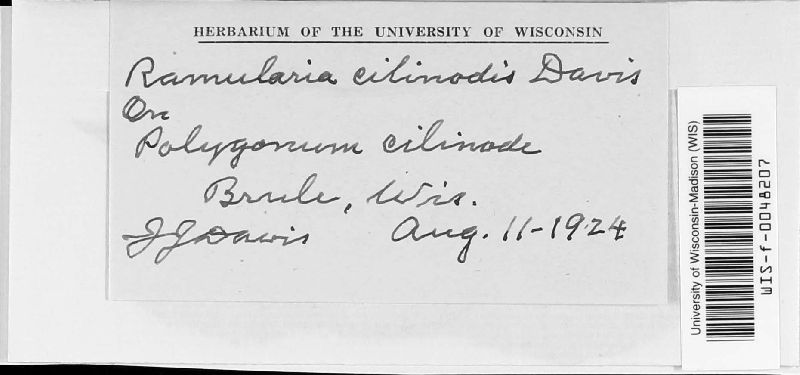 HERBARIUM OF THE UNIVERSITY OF WISCONSIN
Ramularia cilinodis Davis
On
Polygonum cilinode
Brule, Wis.
JJDavis Aug. 11-1924
University of Wisconsin-Madison (WIS)
WIS-f-0048207